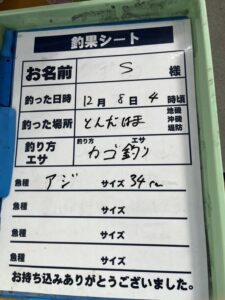 釣果シート
お名前 S 様
釣った日時 12月 8日 4 時頃
釣った場所 とんだはま 地磯 沖磯 堤防
釣り方 エサ 釣り方 エサ カゴ釣り
魚種 アジ サイズ 34cm
魚種 サイズ
魚種 サイズ
魚種 サイズ
お持ち込みありがとうございました。